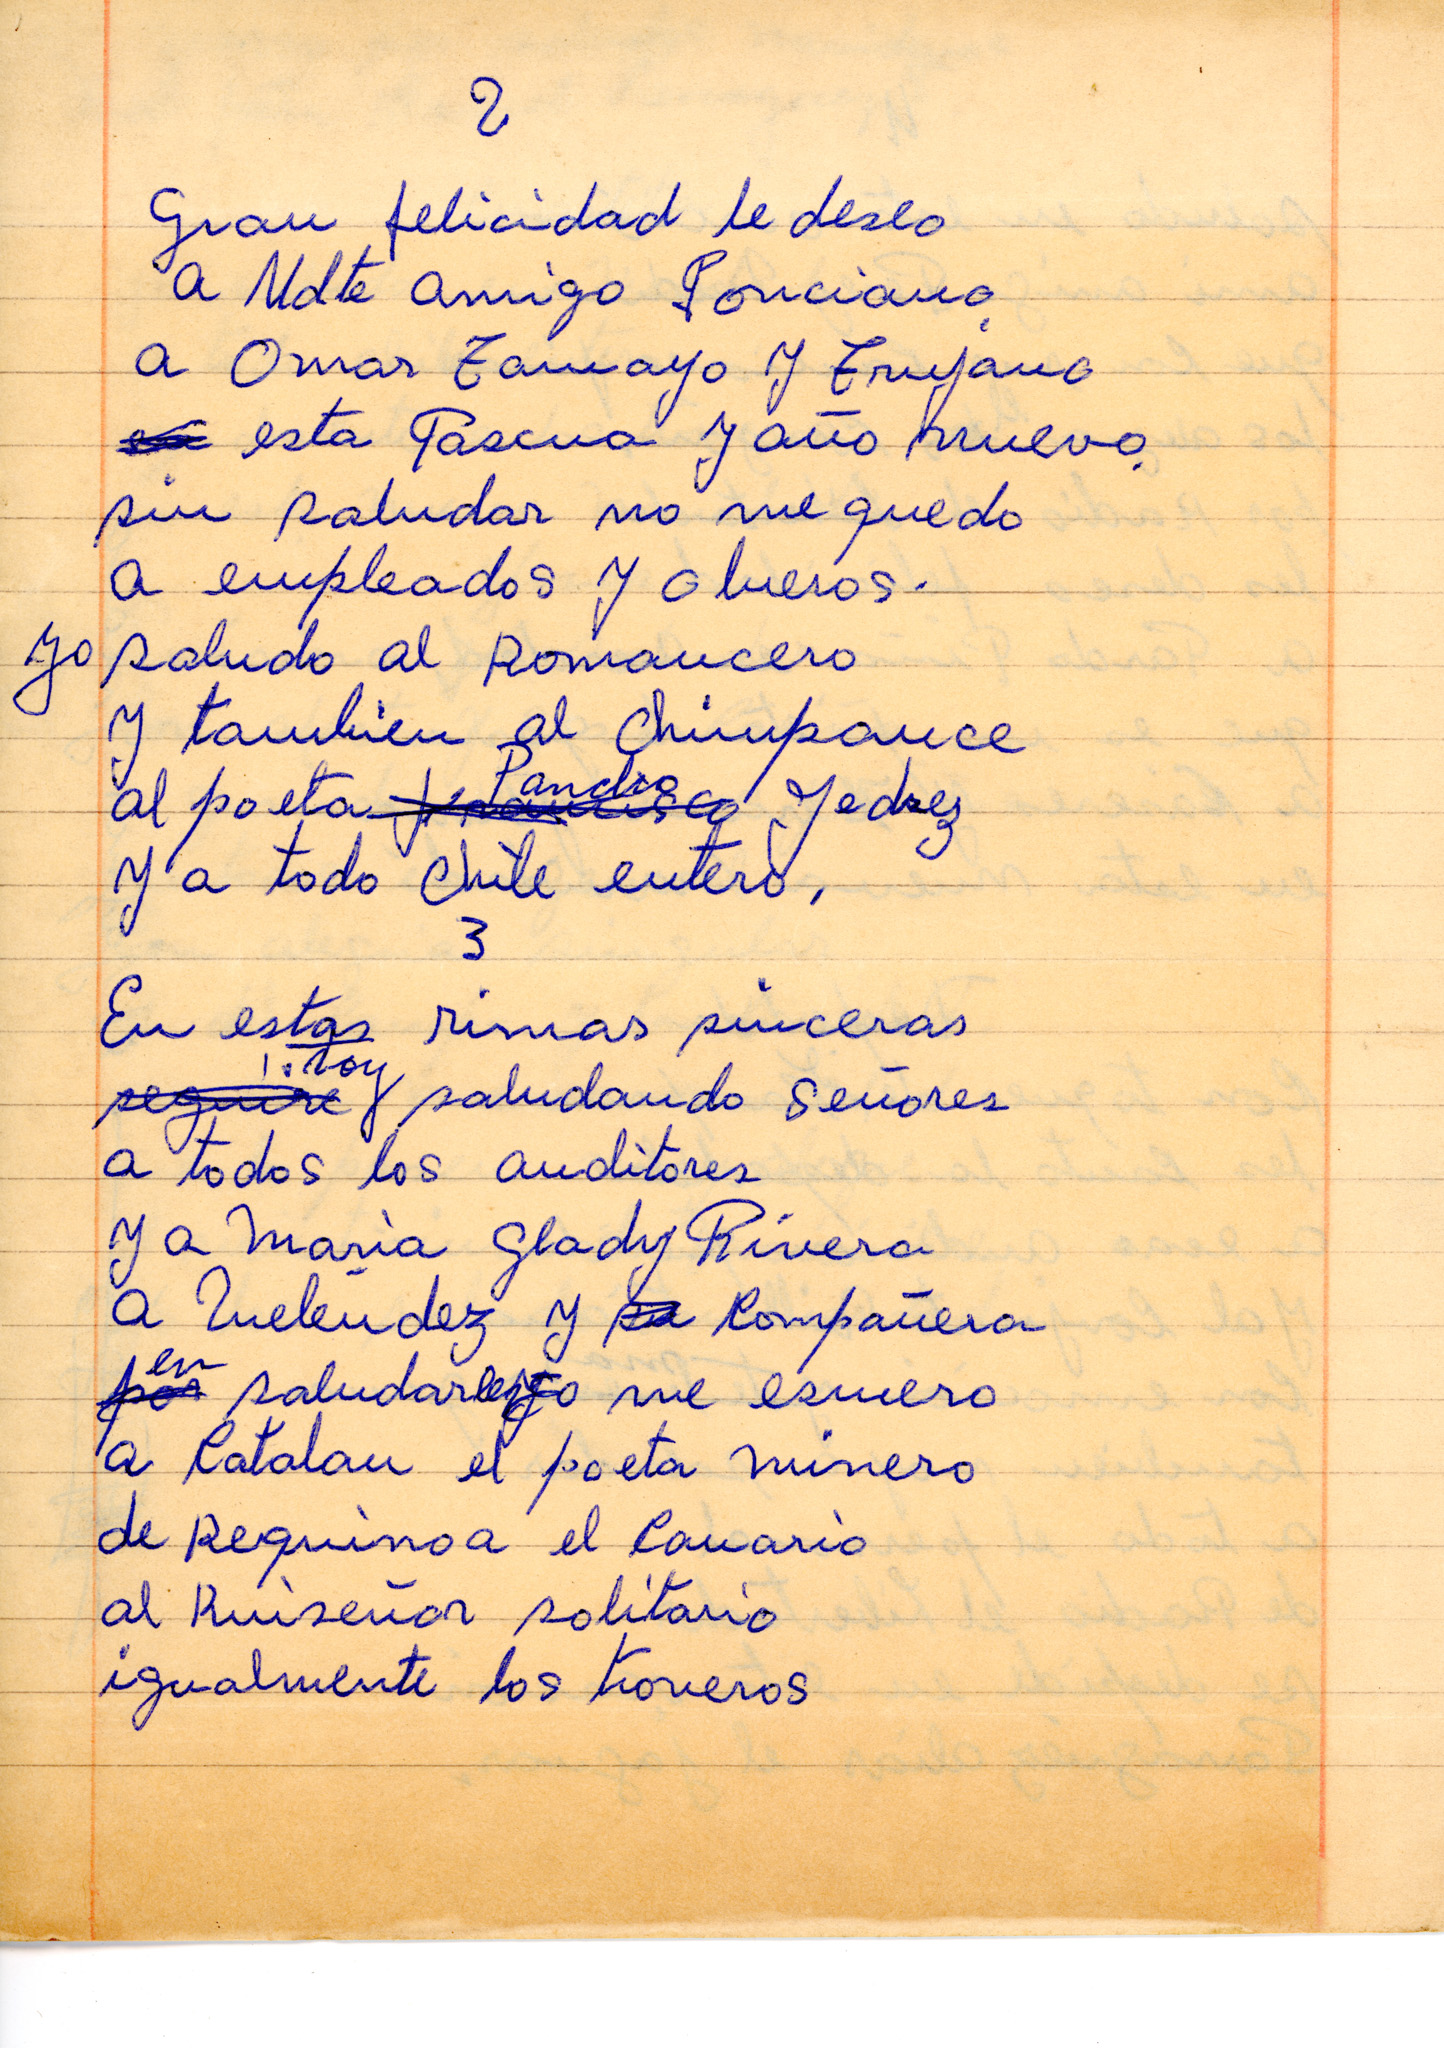 2
Gran felicidad le deseo
a Udte amigo Ponciano,
a Omar Tamayo y Trujano
esta Pascua y año nuevo.
sin saludar no me quedo
a empleados y obreros.
yo saludo al Romancero
y tambien al Chimpance
Pancho
al poeta francisco Yedrez
y a todo Chile entero,
3
En estas rimas sinceras
voy
seguire saludando señores
a todos los auditores
y a Maria Glady Rivera
a Meleńdez y su Compañera
en
por saludarles yo me esmero
a Catalan el poeta minero
de Requinoa el Canario
al Ruiseñor solitario
igualmente los troveros